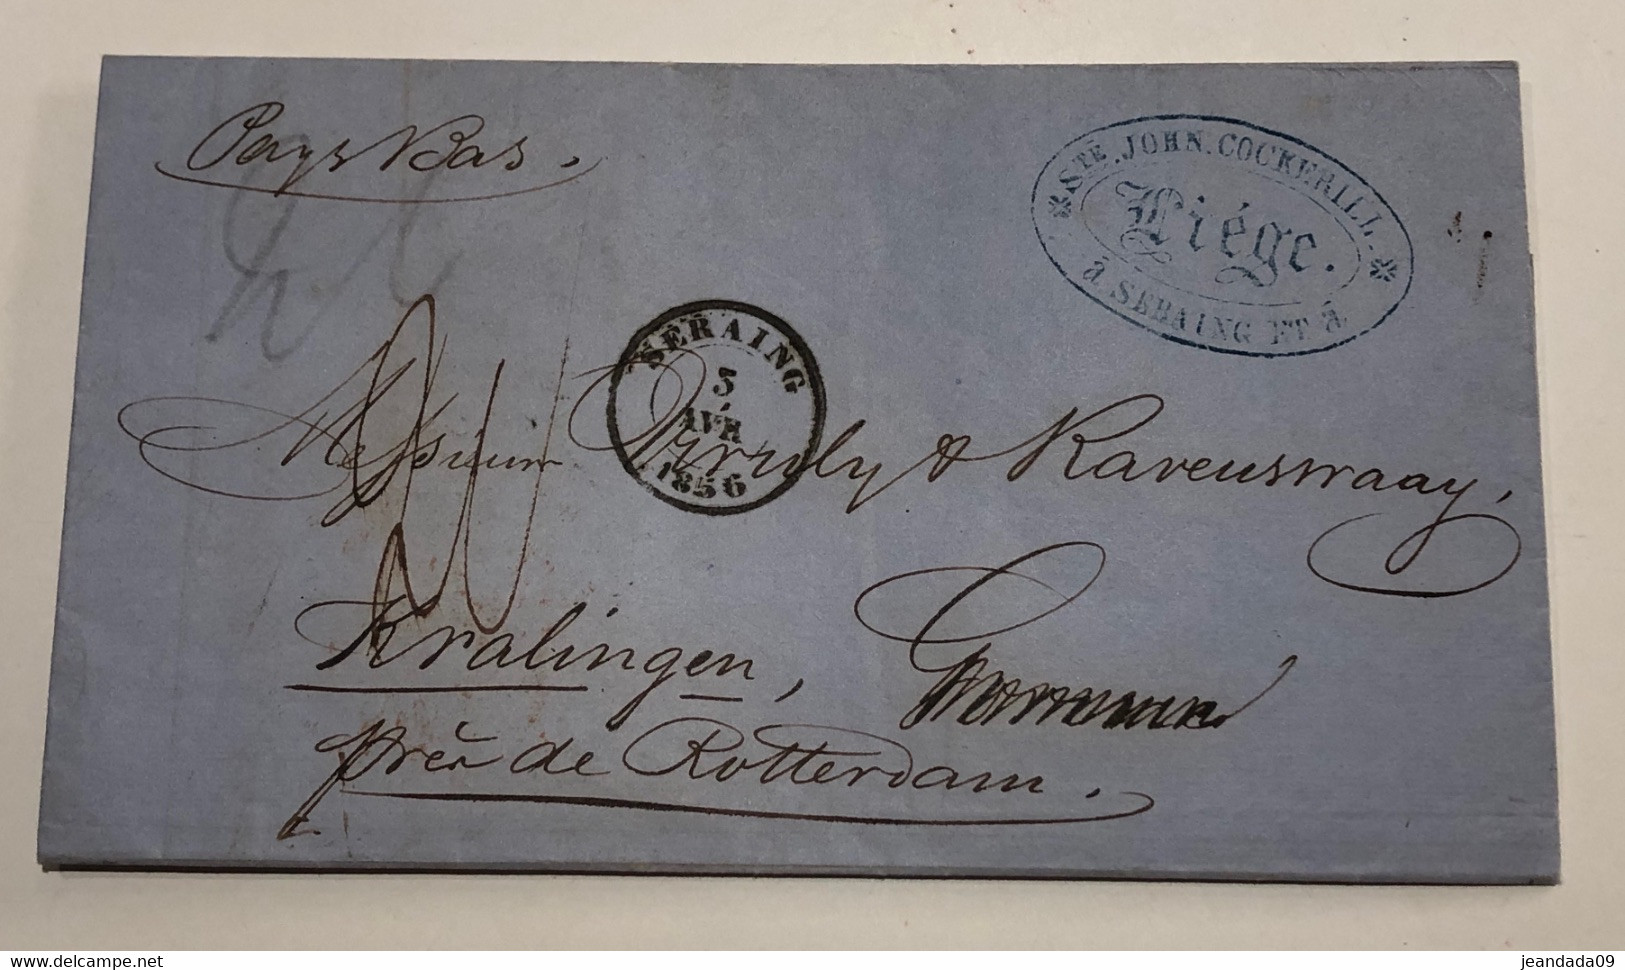 Pays Bas.
STE. JOHN. COCKERILL.
Liége.
à SERAING ET à
SERAING
5
AVR
1856
Messieurs & Ravenswaay,
Kralingen,
près de Rotterdam.
www.delcampe.net
jeandada09